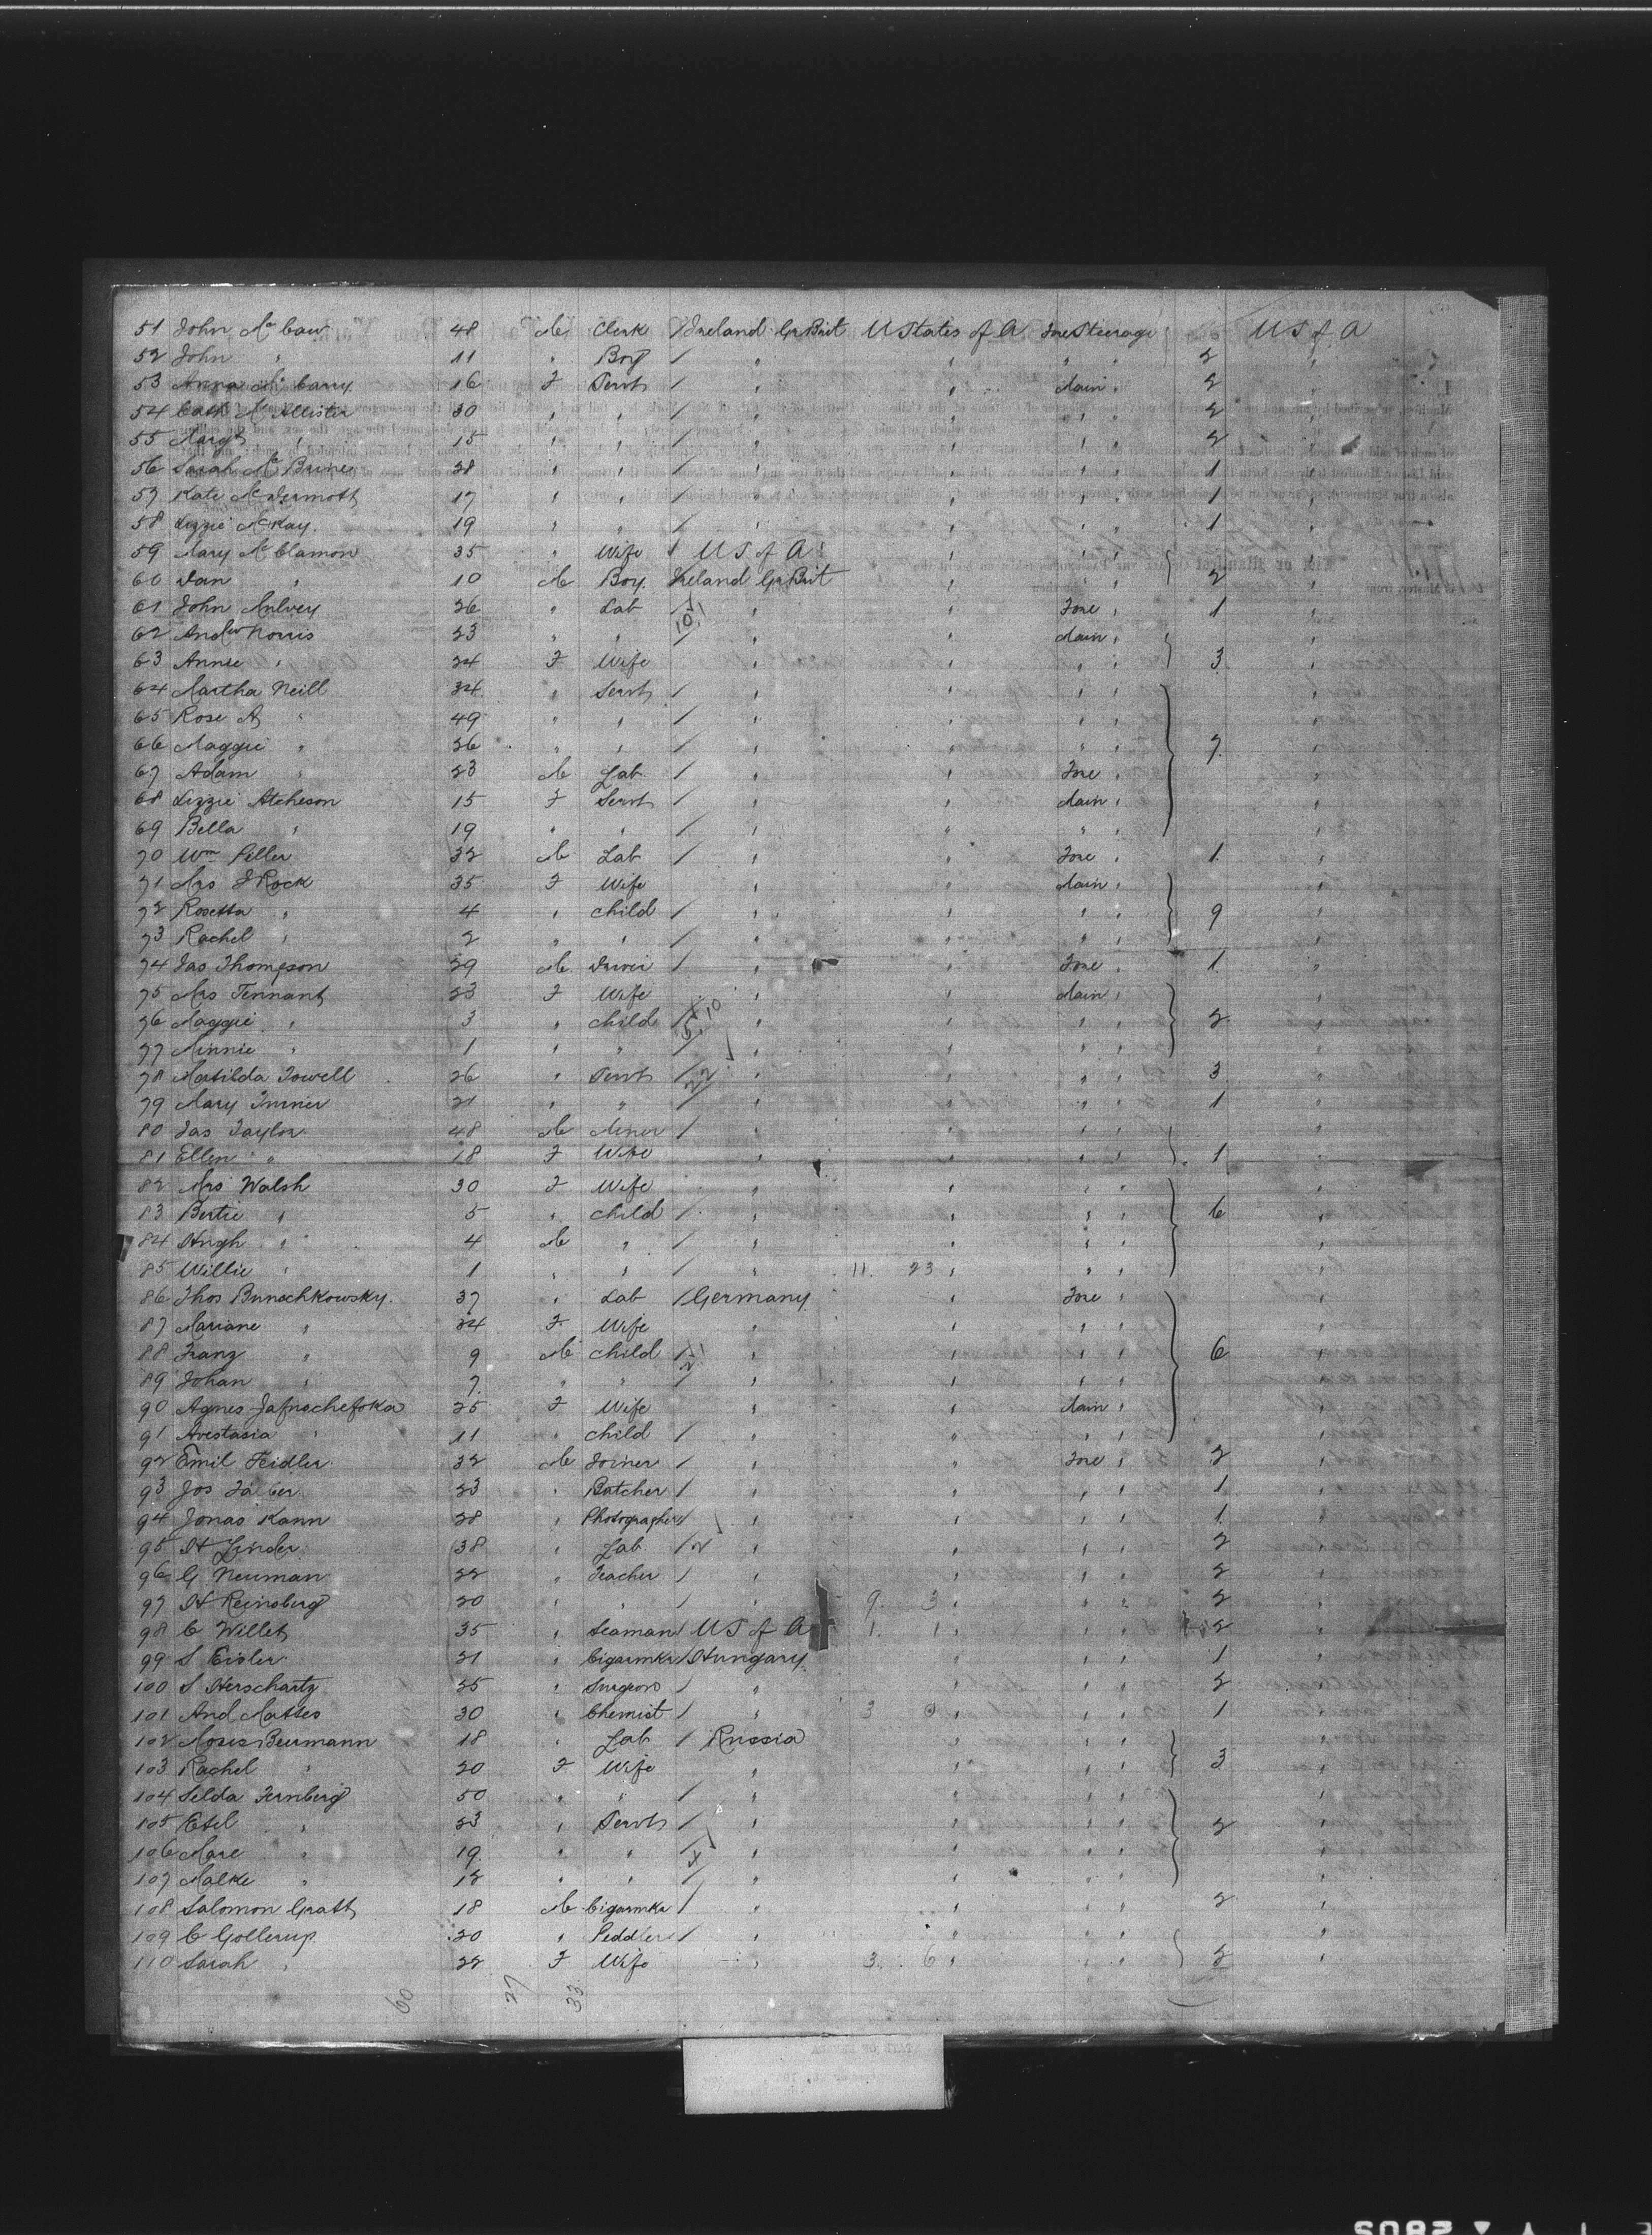 51 John Mc Caw 48 M Clerk / Ireland Gr Brit U States of A Fore Steerage U S of A
52 John " 11 " Boy / " " " " 2 "
53 Anna Mc Carry 16 F Servt / " " Main " 2 "
54 Cath Mc Allister 30 " " / " " " " 2 "
55 Margt " 15 " " / " " " " 2 "
56 Sarah Mc Brine 28 " " / " " " " 1 "
57 Kate McDermott 17 " " / " " " " 1 "
58 Lizzie McKay 19 " " / " " " " 1 "
59 Mary Mc Clamon 35 " Wife / U S of A " " " "
60 Dan " 10 M Boy Ireland Gr Brit " " " 2 "
61 John Mulvey 26 " Lab / " " Fore " 1 "
62 Andw Norris 23 " " / " " Main " "
63 Annie " 24 F Wife " " " " 3 "
64 Martha Neill 34 " Servt / " " " " "
65 Rose A " 49 " " / " " " " "
66 Maggie " 26 " " / " " " " 7 "
67 Adam " 23 M Lab / " " Fore " "
68 Lizzie Atcheson 15 F Servt / " " Main " "
69 Bella " 19 " " / " " " " "
70 Wm Peller 32 M Lab / " " Fore " 1 "
71 Mrs J Rock 35 F Wife " " Main " "
72 Rosetta " 4 " child / " " " " 9 "
73 Rachel " 2 " " / " " " " "
74 Jas Thompson 29 M / " " Fore " 1 "
75 Mrs Tennant 23 F Wife " " Main " "
76 Maggie " 3 " child / " " " " 2 "
77 Minnie " 1 " " / " " " " "
78 Matilda Towell 26 " Servt / " " " " 3 "
79 Mary Turner 21 " " / " " " " 1 "
80 Jas Taylor 48 M Miner / " " " " "
81 Ellen " 18 F Wife " " " " 1 "
82 Mrs Walsh 30 F Wife " " " " "
83 Bertie " 5 " child / " " " " 6 "
84 Hugh " 4 M " / " " " " "
85 Willie " 1 " " / " 11. 23 " " " "
86 Thos Brunochkowsky 37 " Lab / Germany " Fore " "
87 Mariane " 24 F Wife " " " " "
88 Franz " 9 M child / " " " " 6 "
89 Johan " 7 " " / " " " " "
90 Agnes 25 F Wife " " Main " "
91 Avestasia " 11 " child / " " " " "
92 Emil Feidler 32 M Joiner / " " Fore " 2 "
93 Jos 23 " Butcher / " " " " 1 "
94 Jonas Kann 28 " Photographer / " " " " 1 "
95 H Linder 38 " Lab / " " " " 2 "
96 G. Neuman 22 " Teacher / " " " " 2 "
97 H Reinsberg 20 " " / " 9. 3 " " " 2 "
98 C Willet 35 " Seaman / U S of A 1. 1 " " " 2 "
99 S Eisler 21 " Cigarmkr / Hungary " " " 1 "
100 S Herschartz 25 " Surgeon / " " " " 2 "
101 And Mattes 30 " Chemist / " 3 0 " " " 1 "
102 Moses Beumann 18 " Lab / Russia " " " "
103 Rachel " 20 F Wife " " " " 3 "
104 Selda Fernberg 50 " " / " " " " "
105 Etel " 23 " Servt / " " " " 2 "
106 Mare " 19 " " / " " " " "
107 Malke " 12 " " / " " " " "
108 Salomon Gratt 18 M Cigarmkr / " " " " 2 "
109 C Gollerup 20 " Peddler / " " " " "
110 Sarah " 22 F Wife " 3. 6 " " " 2 "
60 27 33